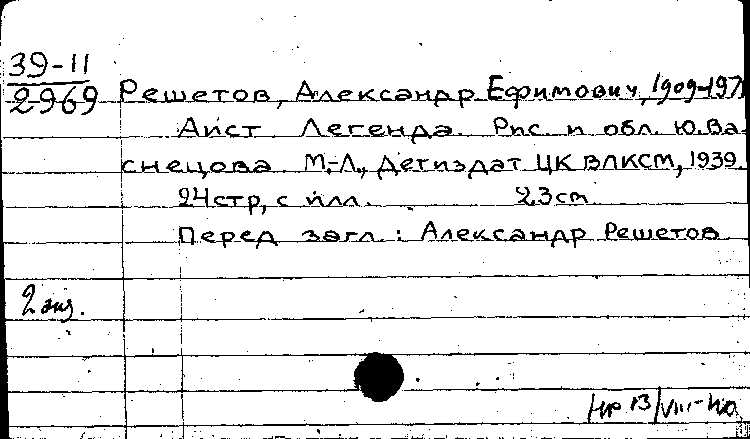 39-11
2969
Решетов, Александр Ефимович, 1909-197
Аист. Легенда. Рис. и обл. Ю. Ва-
снецова. М.-Л., Детиздат ЦК ВЛКСМ, 1939.
24 стр, с илл. 23 cm
Перед загл.: Александр Решетов
2 экз.